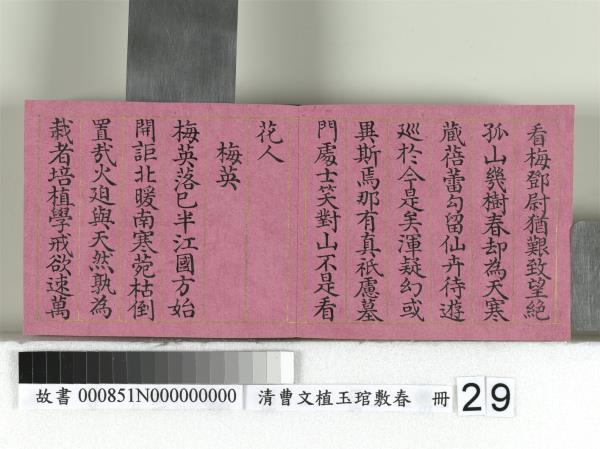 看梅鄧尉猶艱致望絕
孤山幾樹春却為天寒
藏蓓蕾勾留仙卉待遊
巡於今是矣渾疑幻或
異斯焉那有真祇慮墓
門處士笑對山不是看
花人
梅英
梅英落已半江國方始
開詎北暖南寒菀枯倒
置哉火迫與天然孰為
栽者培植學戒欲速萬
故書 000851N000000000
清曹文植玉琯敷春 冊
29